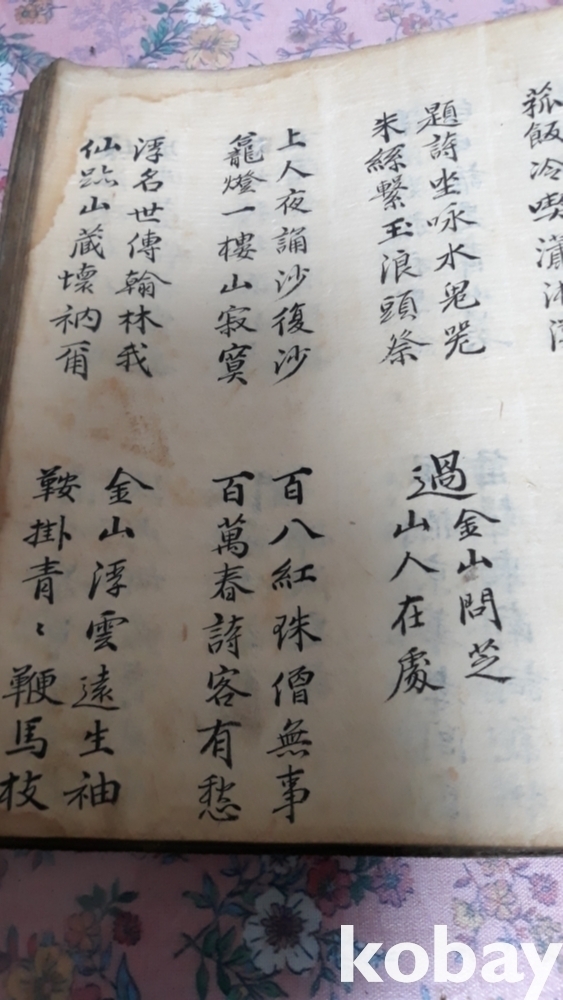 菰飯冷喫瀟湘
題詩坐咏水鬼哭
朱絲繫玉浪頭祭
過金山問芝
山人在處
上人夜誦沙復沙
籠燈一樓山寂寞
百八紅珠僧無事
百萬春詩客有愁
浮名世傳翰林我
仙跡山藏壞衲爾
金山浮雲遠生袖
鞍掛青〻鞭馬枝
kobay